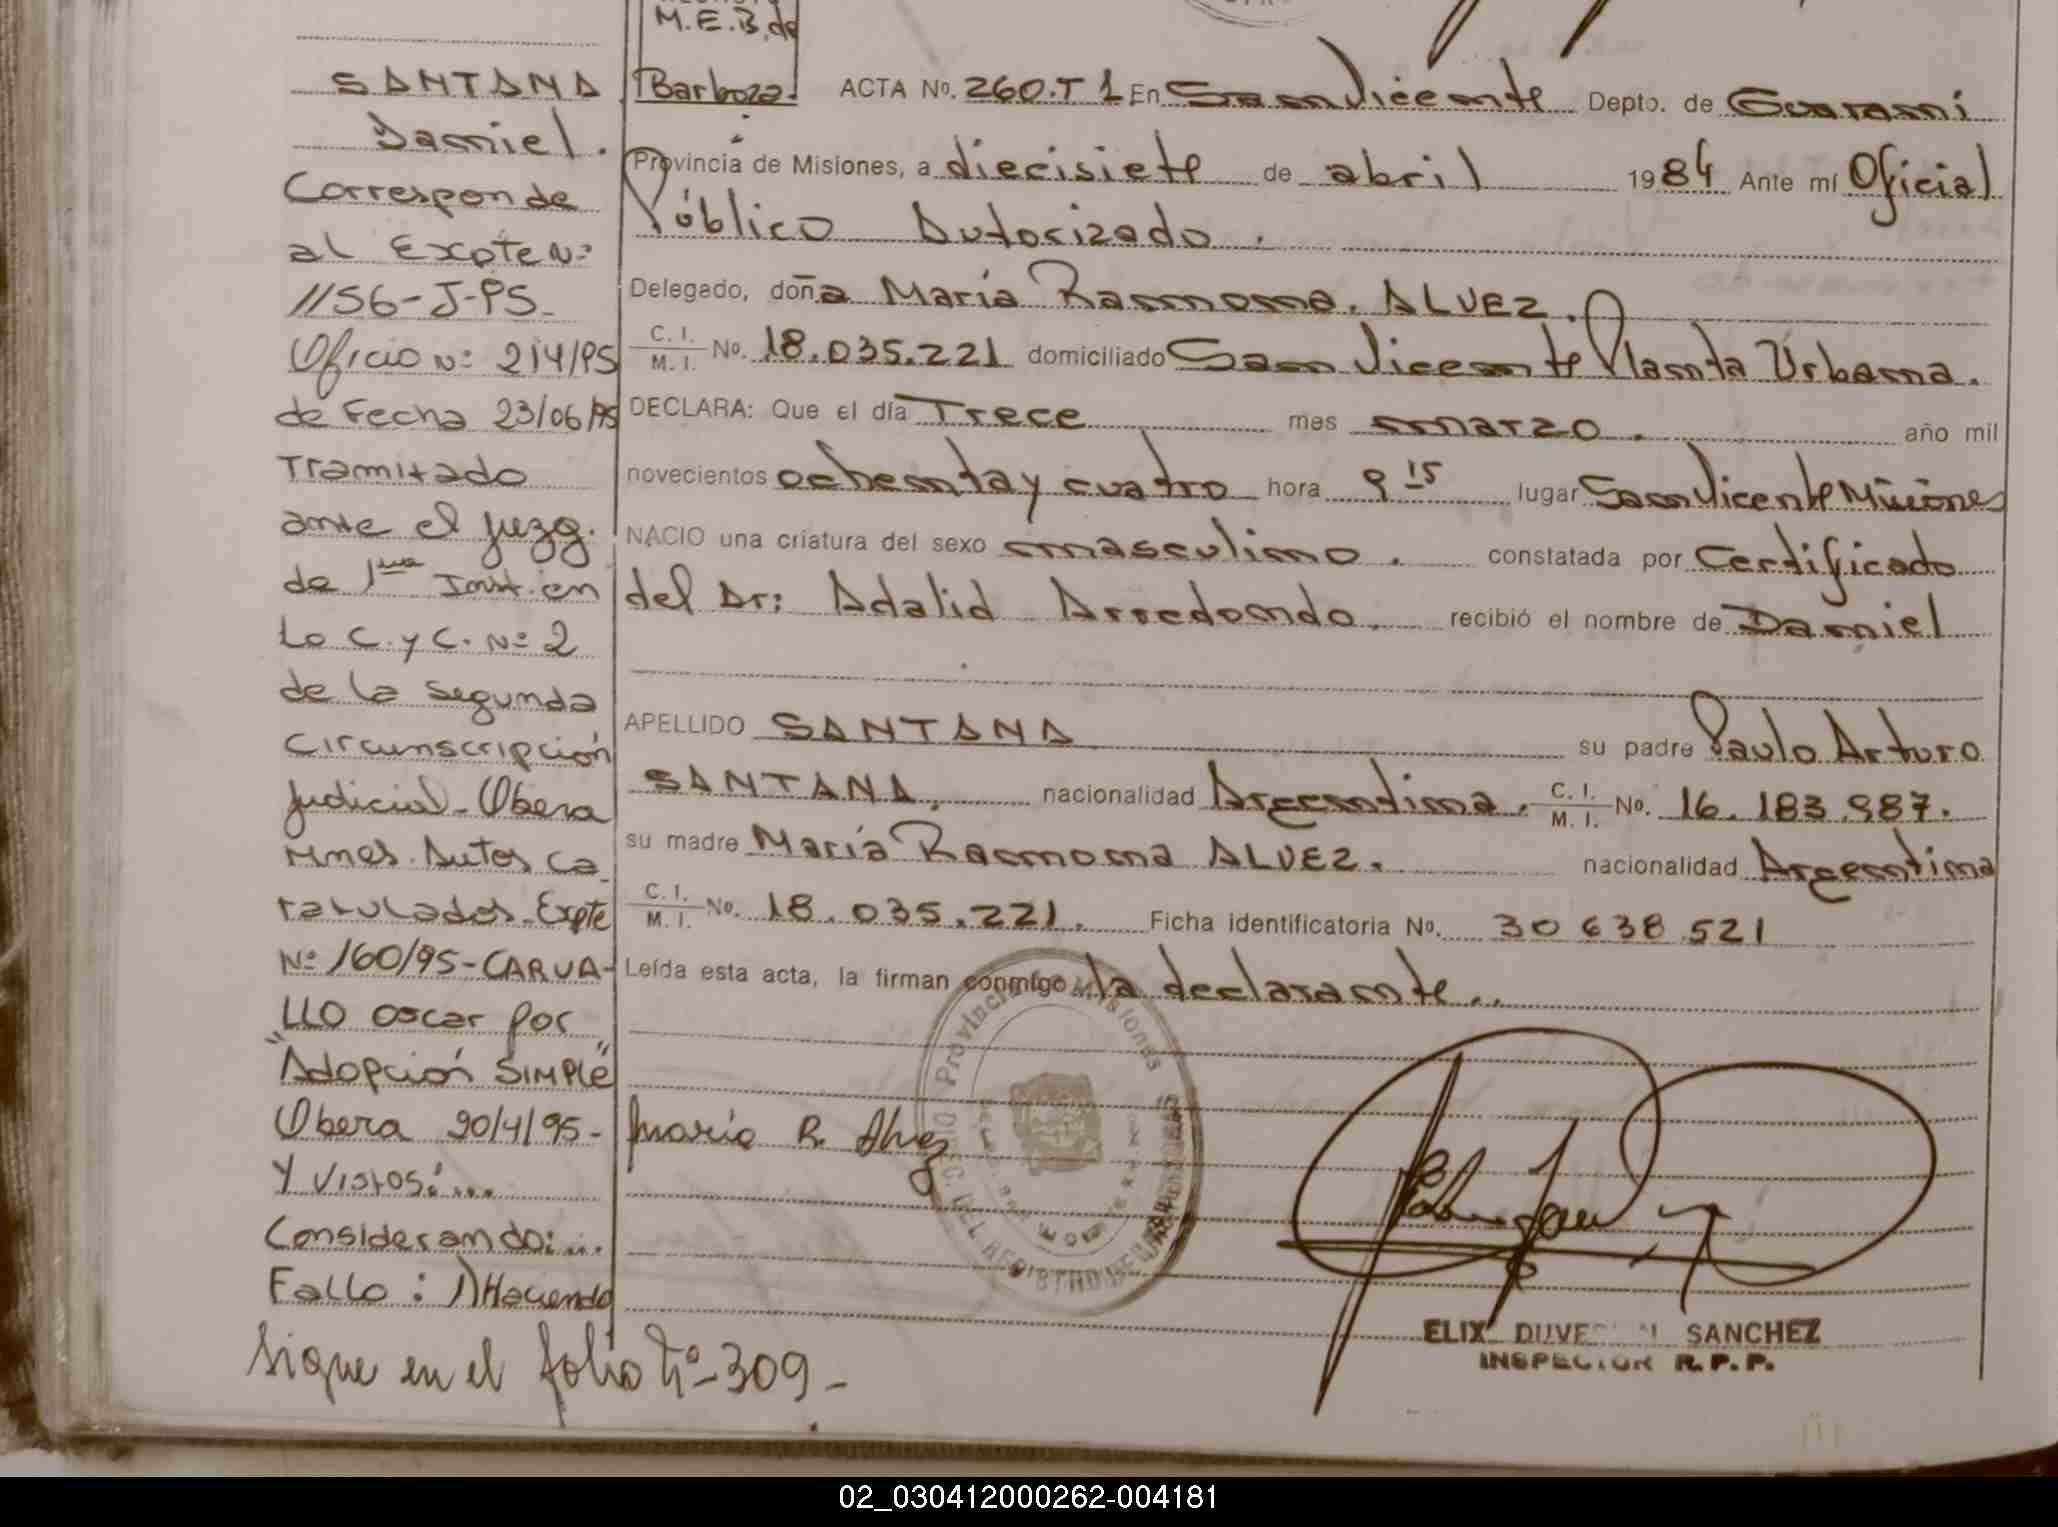 M.E.B. de
Barboza.
SANTANA
Daniel.
Corresponde
al Expte Nº
1156-J-95-
Oficio Nº 214/95
de Fecha 23/06/95
Tramitado
ante el Juzg.
de 1ra Inst. en
Lo C. y C. Nº 2
de la Segunda
Circunscripción
Judicial - Obera
Mnes. Autos Ca_
ratulados. Expte
Nº 160/95-CARVA-
LLO oscar por
"Adopción SIMPLE"
Obera 20/4/95-
Y Vistos:...
Considerando:...
Fallo: 1) Haciendo
Sigue en el folio Nº-309-
ACTA Nº. 260.T 1 En San Vicente Depto. de Guarani
Provincia de Misiones, a diecisiete de abril 1984 Ante mí Oficial
Público Autorizado.
Delegado, doña María Ramona. ALVEZ.
C. I. / M. I. Nº. 18.035.221 domiciliado San Vicente Planta Urbana.
DECLARA: Que el día Trece mes marzo. año mil
novecientos ochenta y cuatro hora 9 15 lugar San Vicente Misiones
NACIO una criatura del sexo masculino. constatada por Certificado
del Dr: Adalid Arredondo. recibió el nombre de Daniel
APELLIDO SANTANA su padre Paulo Arturo
SANTANA. nacionalidad Argentina. C. I. / M. I. Nº. 16.183.987.
su madre María Ramona ALVEZ. nacionalidad Argentina
C. I. / M. I. Nº. 18.035.221. Ficha identificatoria Nº. 30 638 521
Leída esta acta, la firman conmigo la declarante..
Provincia de Misiones
DEL REGISTRO DE
Maria R. Alvez
SANCHEZ
INSPECTOR R.P.P.
02_030412000262-004181